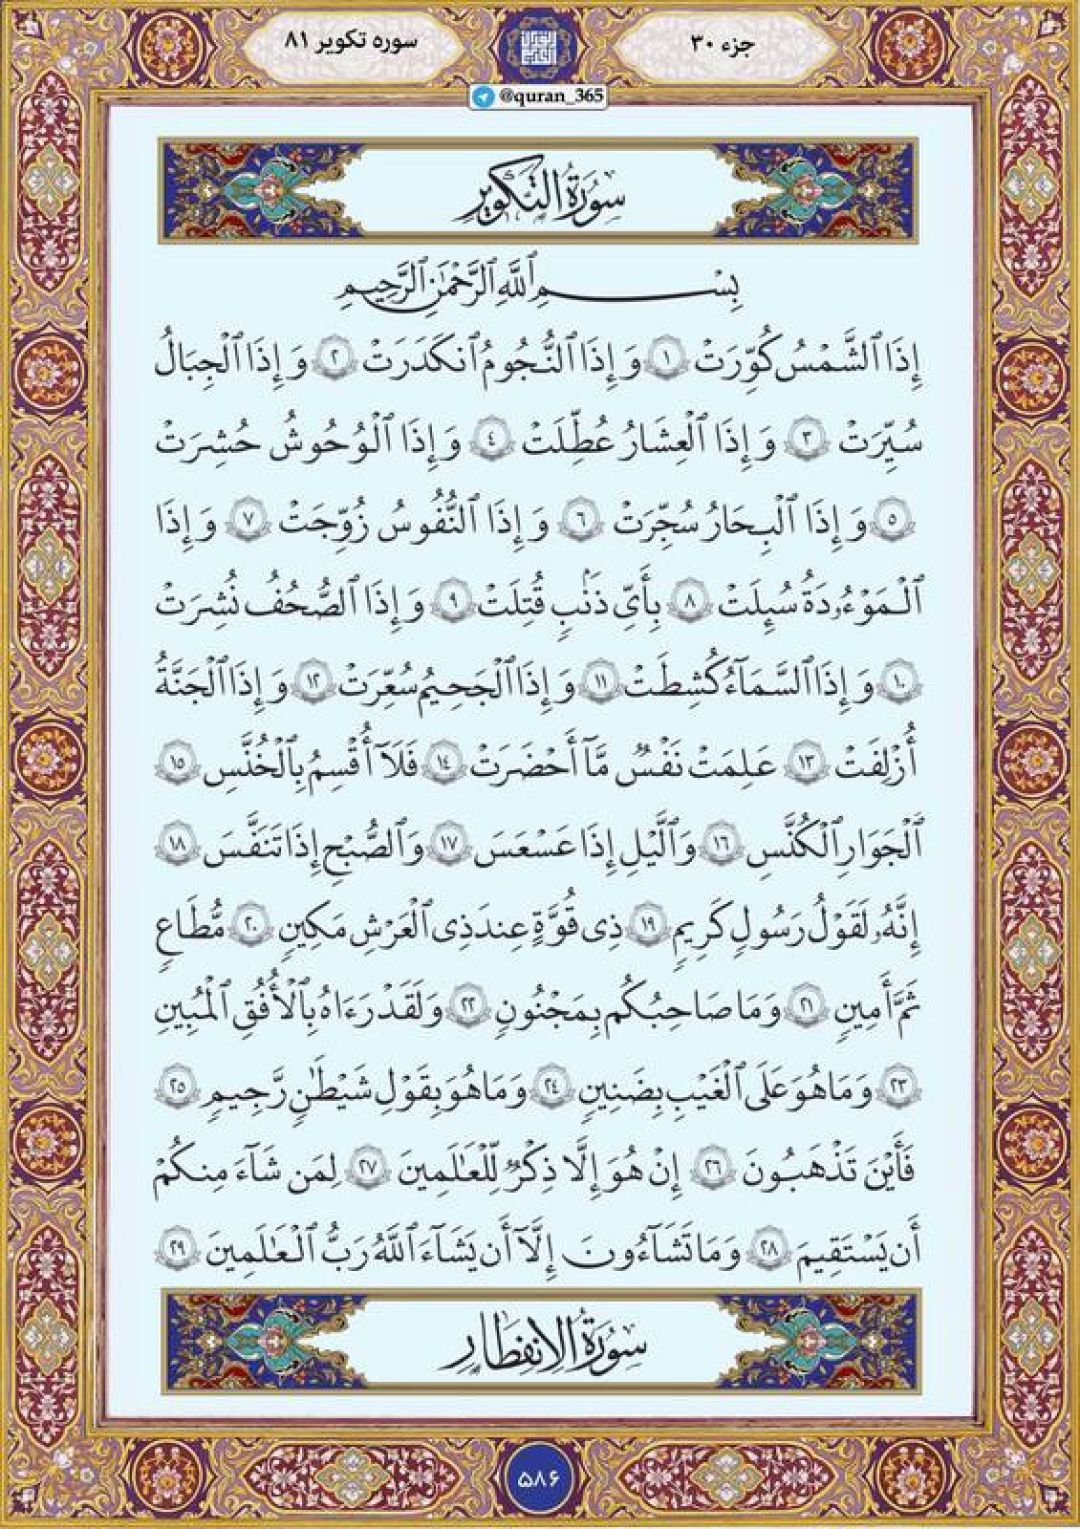 جزء ۳۰
سوره تکویر ۸۱
@quran_365
سُورَةُ التَّكْوِيرِ
بِسْمِ ٱللَّهِ ٱلرَّحْمَٰنِ ٱلرَّحِيمِ
إِذَا ٱلشَّمْسُ كُوِّرَتْ ١ وَإِذَا ٱلنُّجُومُ ٱنكَدَرَتْ ٢ وَإِذَا ٱلْجِبَالُ
سُيِّرَتْ ٣ وَإِذَا ٱلْعِشَارُ عُطِّلَتْ ٤ وَإِذَا ٱلْوُحُوشُ حُشِرَتْ
٥ وَإِذَا ٱلْبِحَارُ سُجِّرَتْ ٦ وَإِذَا ٱلنُّفُوسُ زُوِّجَتْ ٧ وَإِذَا
ٱلْمَوْءُۥدَةُ سُئِلَتْ ٨ بِأَيِّ ذَنۢبٍ قُتِلَتْ ٩ وَإِذَا ٱلصُّحُفُ نُشِرَتْ
١٠ وَإِذَا ٱلسَّمَآءُ كُشِطَتْ ١١ وَإِذَا ٱلْجَحِيمُ سُعِّرَتْ ١٢ وَإِذَا ٱلْجَنَّةُ
أُزْلِفَتْ ١٣ عَلِمَتْ نَفْسٌ مَّآ أَحْضَرَتْ ١٤ فَلَآ أُقْسِمُ بِٱلْخُنَّسِ ١٥
ٱلْجَوَارِ ٱلْكُنَّسِ ١٦ وَٱلَّيْلِ إِذَا عَسْعَسَ ١٧ وَٱلصُّبْحِ إِذَا تَنَفَّسَ ١٨
إِنَّهُۥ لَقَوْلُ رَسُولٍ كَرِيمٍ ١٩ ذِى قُوَّةٍ عِندَ ذِى ٱلْعَرْشِ مَكِينٍ ٢٠ مُّطَاعٍ
ثَمَّ أَمِينٍ ٢١ وَمَا صَاحِبُكُم بِمَجْنُونٍ ٢٢ وَلَقَدْ رَءَاهُ بِٱلْأُفُقِ ٱلْمُبِينِ
٢٣ وَمَا هُوَ عَلَى ٱلْغَيْبِ بِضَنِينٍ ٢٤ وَمَا هُوَ بِقَوْلِ شَيْطَٰنٍ رَّجِيمٍ ٢٥
فَأَيْنَ تَذْهَبُونَ ٢٦ إِنْ هُوَ إِلَّا ذِكْرٌ لِّلْعَٰلَمِينَ ٢٧ لِمَن شَآءَ مِنكُمْ
أَن يَسْتَقِيمَ ٢٨ وَمَا تَشَآءُونَ إِلَّآ أَن يَشَآءَ ٱللَّهُ رَبُّ ٱلْعَٰلَمِينَ ٢٩
سُورَةُ الِانفِطَارِ
۵۸۶